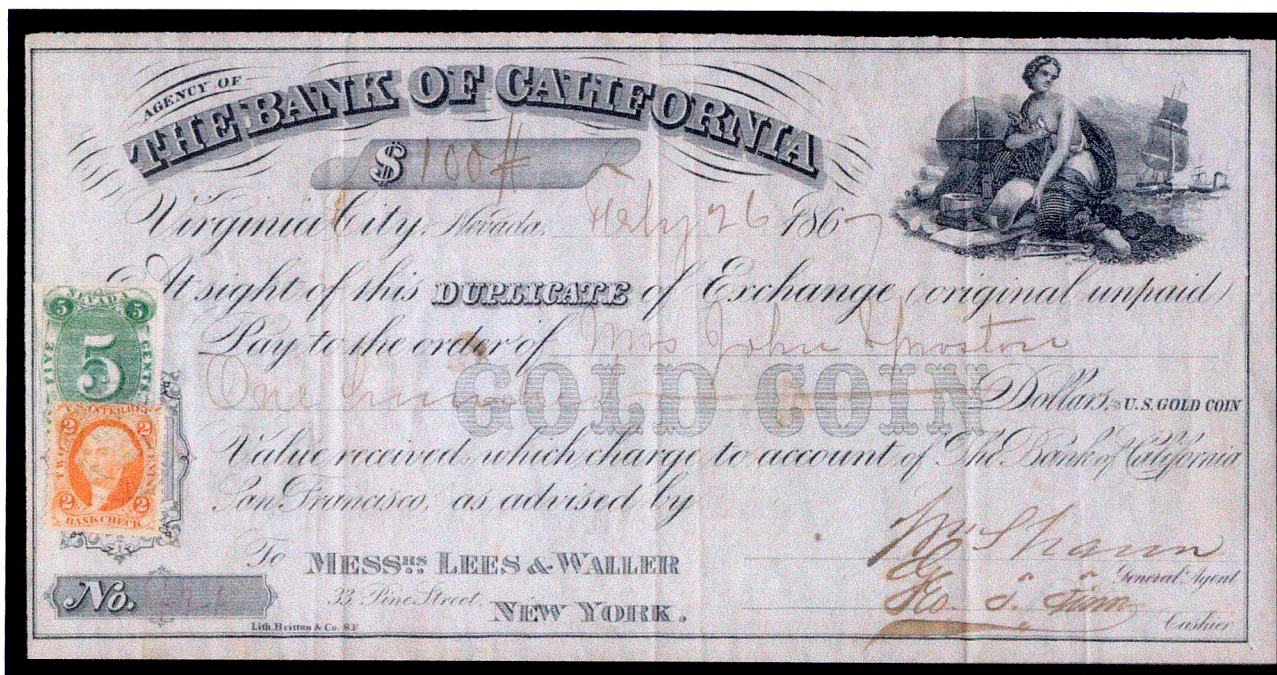 AGENCY OF
THE BANK OF CALIFORNIA
$ 100
Virginia City, Nevada, Feby 26 1867
At sight of this DUPLICATE of Exchange (original unpaid)
Pay to the order of Mrs John
One hundred Dollars. U.S. GOLD COIN
GOLD COIN
Value received, which charge to account of The Bank of California
San Francisco, as advised by
To MESSRS LEES & WALLER
General Agent
33 Pine Street, NEW YORK.
Cashier
No.
Lith. Britton & Co. S.F.
5 NEVADA 5
FIVE 5 CENTS
U.S. INTER. REV.
2 2
TWO
2 2
BANK CHECK